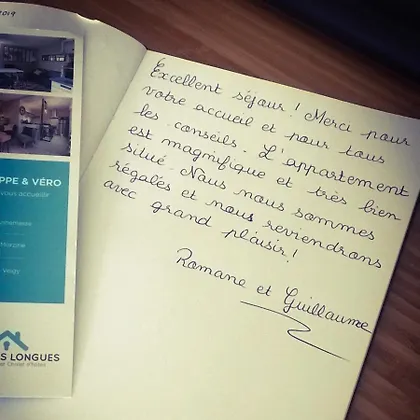 2019
PPE & VÉRO
vous accueille
S LONGUES
Excellent séjour ! Merci pour
votre accueil et pour tous
les conseils. L'appartement
est magnifique et très bien
situé. Nous nous sommes
régalés et nous reviendrons
avec grand plaisir !
Romane et Guillaume